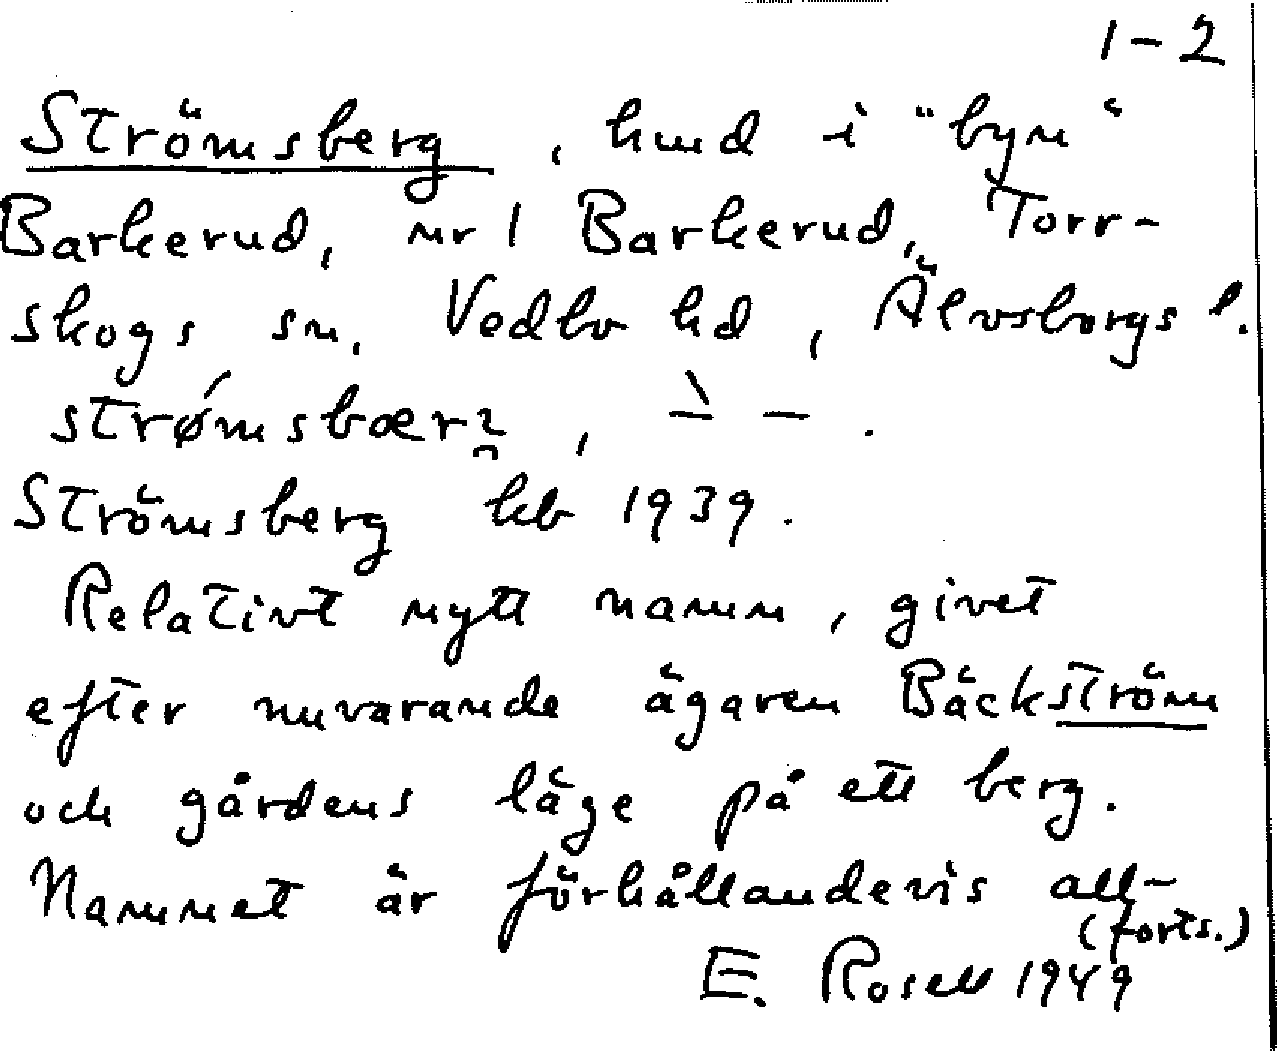 1-2
Strömsberg, hmd i "byn"
Barkerud, nr 1 Barkerud, Torr-
skogs sn, Vedbo hd, Älvsborgs l.
strǿmsbærꝛ̑, –̀ –.
Strömsberg kb 1939.
Relativt nytt namn, givet
efter nuvarande ägaren Bäckström
och gårdens läge på ett berg.
Namnet är förhållandevis all-
(forts.)
E. Rosell 1949